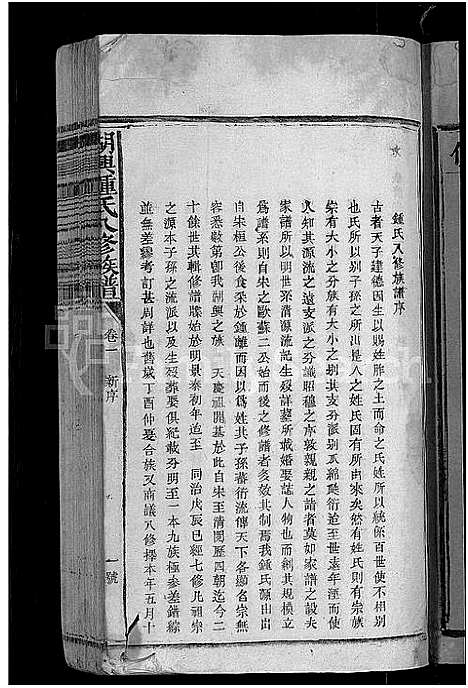 鍾氏八修族譜序
古者天子建德因生以賜姓胙之土而命之氏姓所以統係百世使不相別
也氏所以別子孫之所出是人之姓氏固有所由來矣然有姓氏則有宗族
有宗族則有大小之分族有大小之別其支分派別瓜綿瓞衍遠至世遠年湮而使
人知其源流之遠支派之分識昭穆之序敦親親之誼者莫如家譜之設夫
家譜所以明世系清源流誌生歿詳塋所載婚娶誌人物也而創其規模立
為譜系則自宋之歐蘇二公始而後之修譜者多效其制焉我鍾氏源出
自宋桓公後食采於鍾離而因以為姓其子孫蕃衍流傳天下各顯名宗無
容悉敷第卽我湖興之族 天慶祖開基於宋至清閱歷四朝迄今二
十餘世其輯修譜牒始於明景泰初年迨至 同治戊辰已經七修凡祖宗
之源本子孫之流派以及生歿葬娶俱紀載分明至一本九族極參差錯綜
並無差謬考訂甚周詳也舊歲丁酉仲夏合族又商議八修擇本年五月十
湖興鍾氏八修族譜
卷一 新序
一號